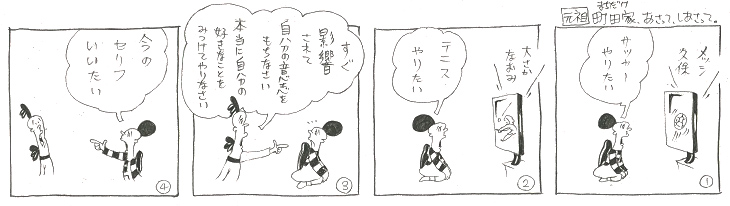 まちだけ
元祖 町田家、あさって、しあさって。
メッシ
久保
サッカー
やりたい
①
大さか
なおみ
テニス
やりたい
②
すぐ
影響
されて
自分の意志を
もちなさい
本当に自分の
好きなことを
みつけてやりなさい
③
今の
セリフ
いいたい
④